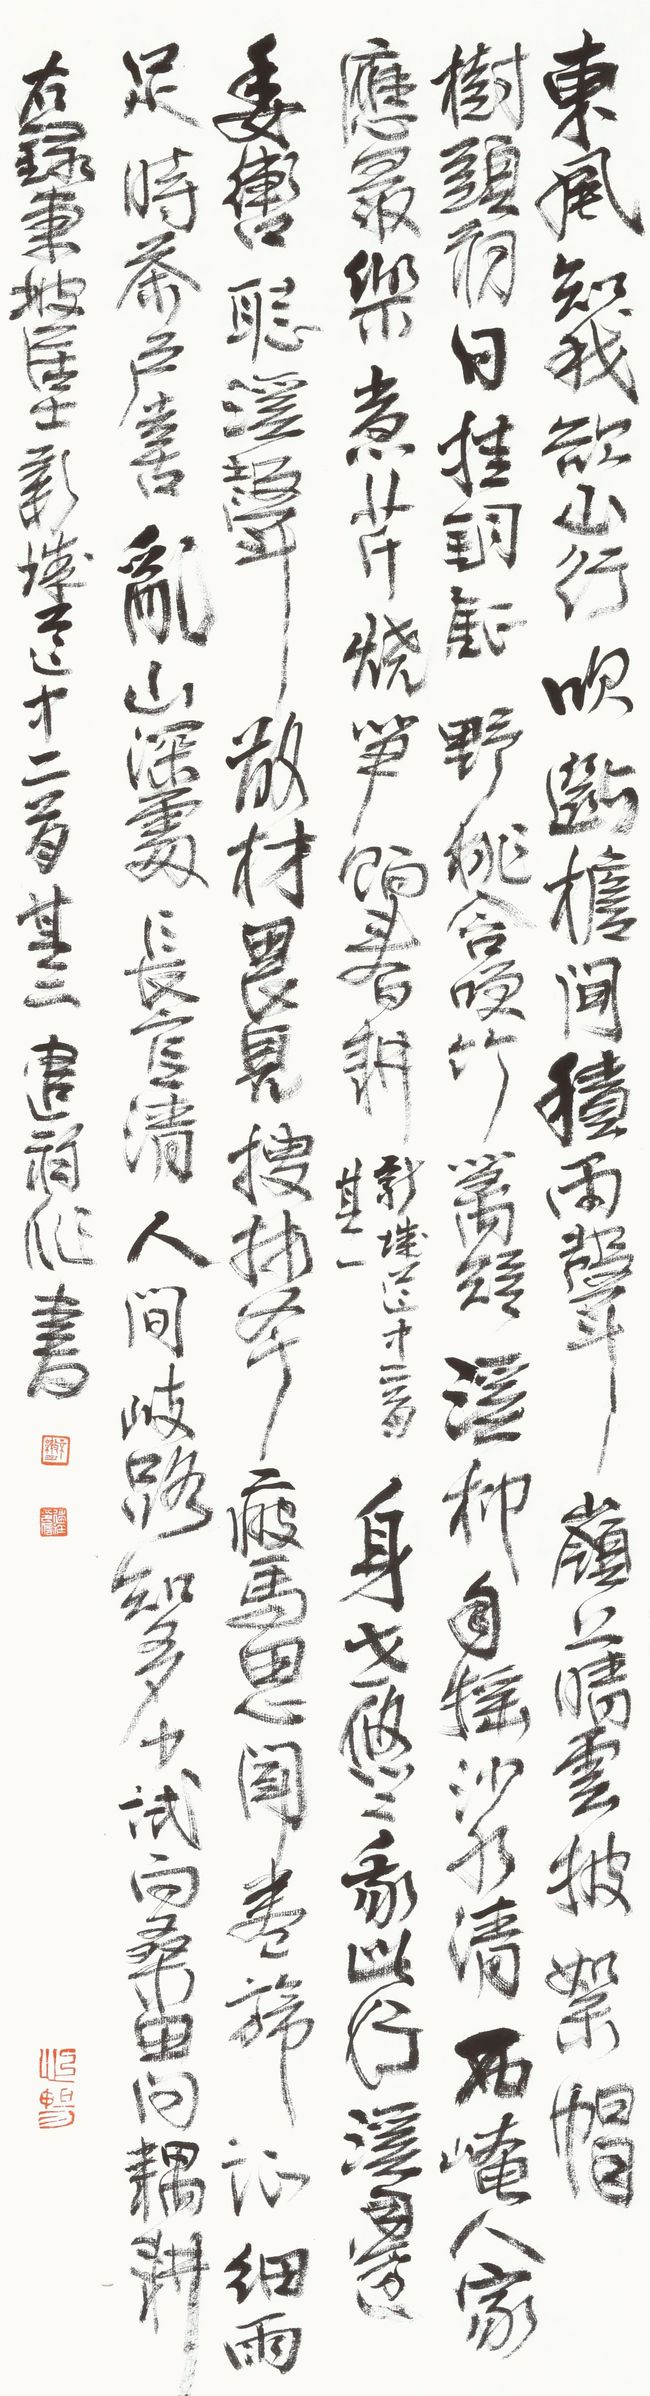 東風知我欲山行吹斷檐間積雨聲嶺上晴雲披絮帽
樹頭初日挂銅鉦野桃含咲竹籬短溪柳自搖沙水清西崦人家
應最樂煮芹燒笋餉春耕
新城道中二首
其一
身世悠悠我此行溪邊
委轡聽溪聲散材畏見搜林斧疲馬思聞卷旆鉦細雨
足時茶戶喜亂山深處長官清人間岐路知多少試向桑田問耦耕
右錄東坡居士新城道中二首其二 書